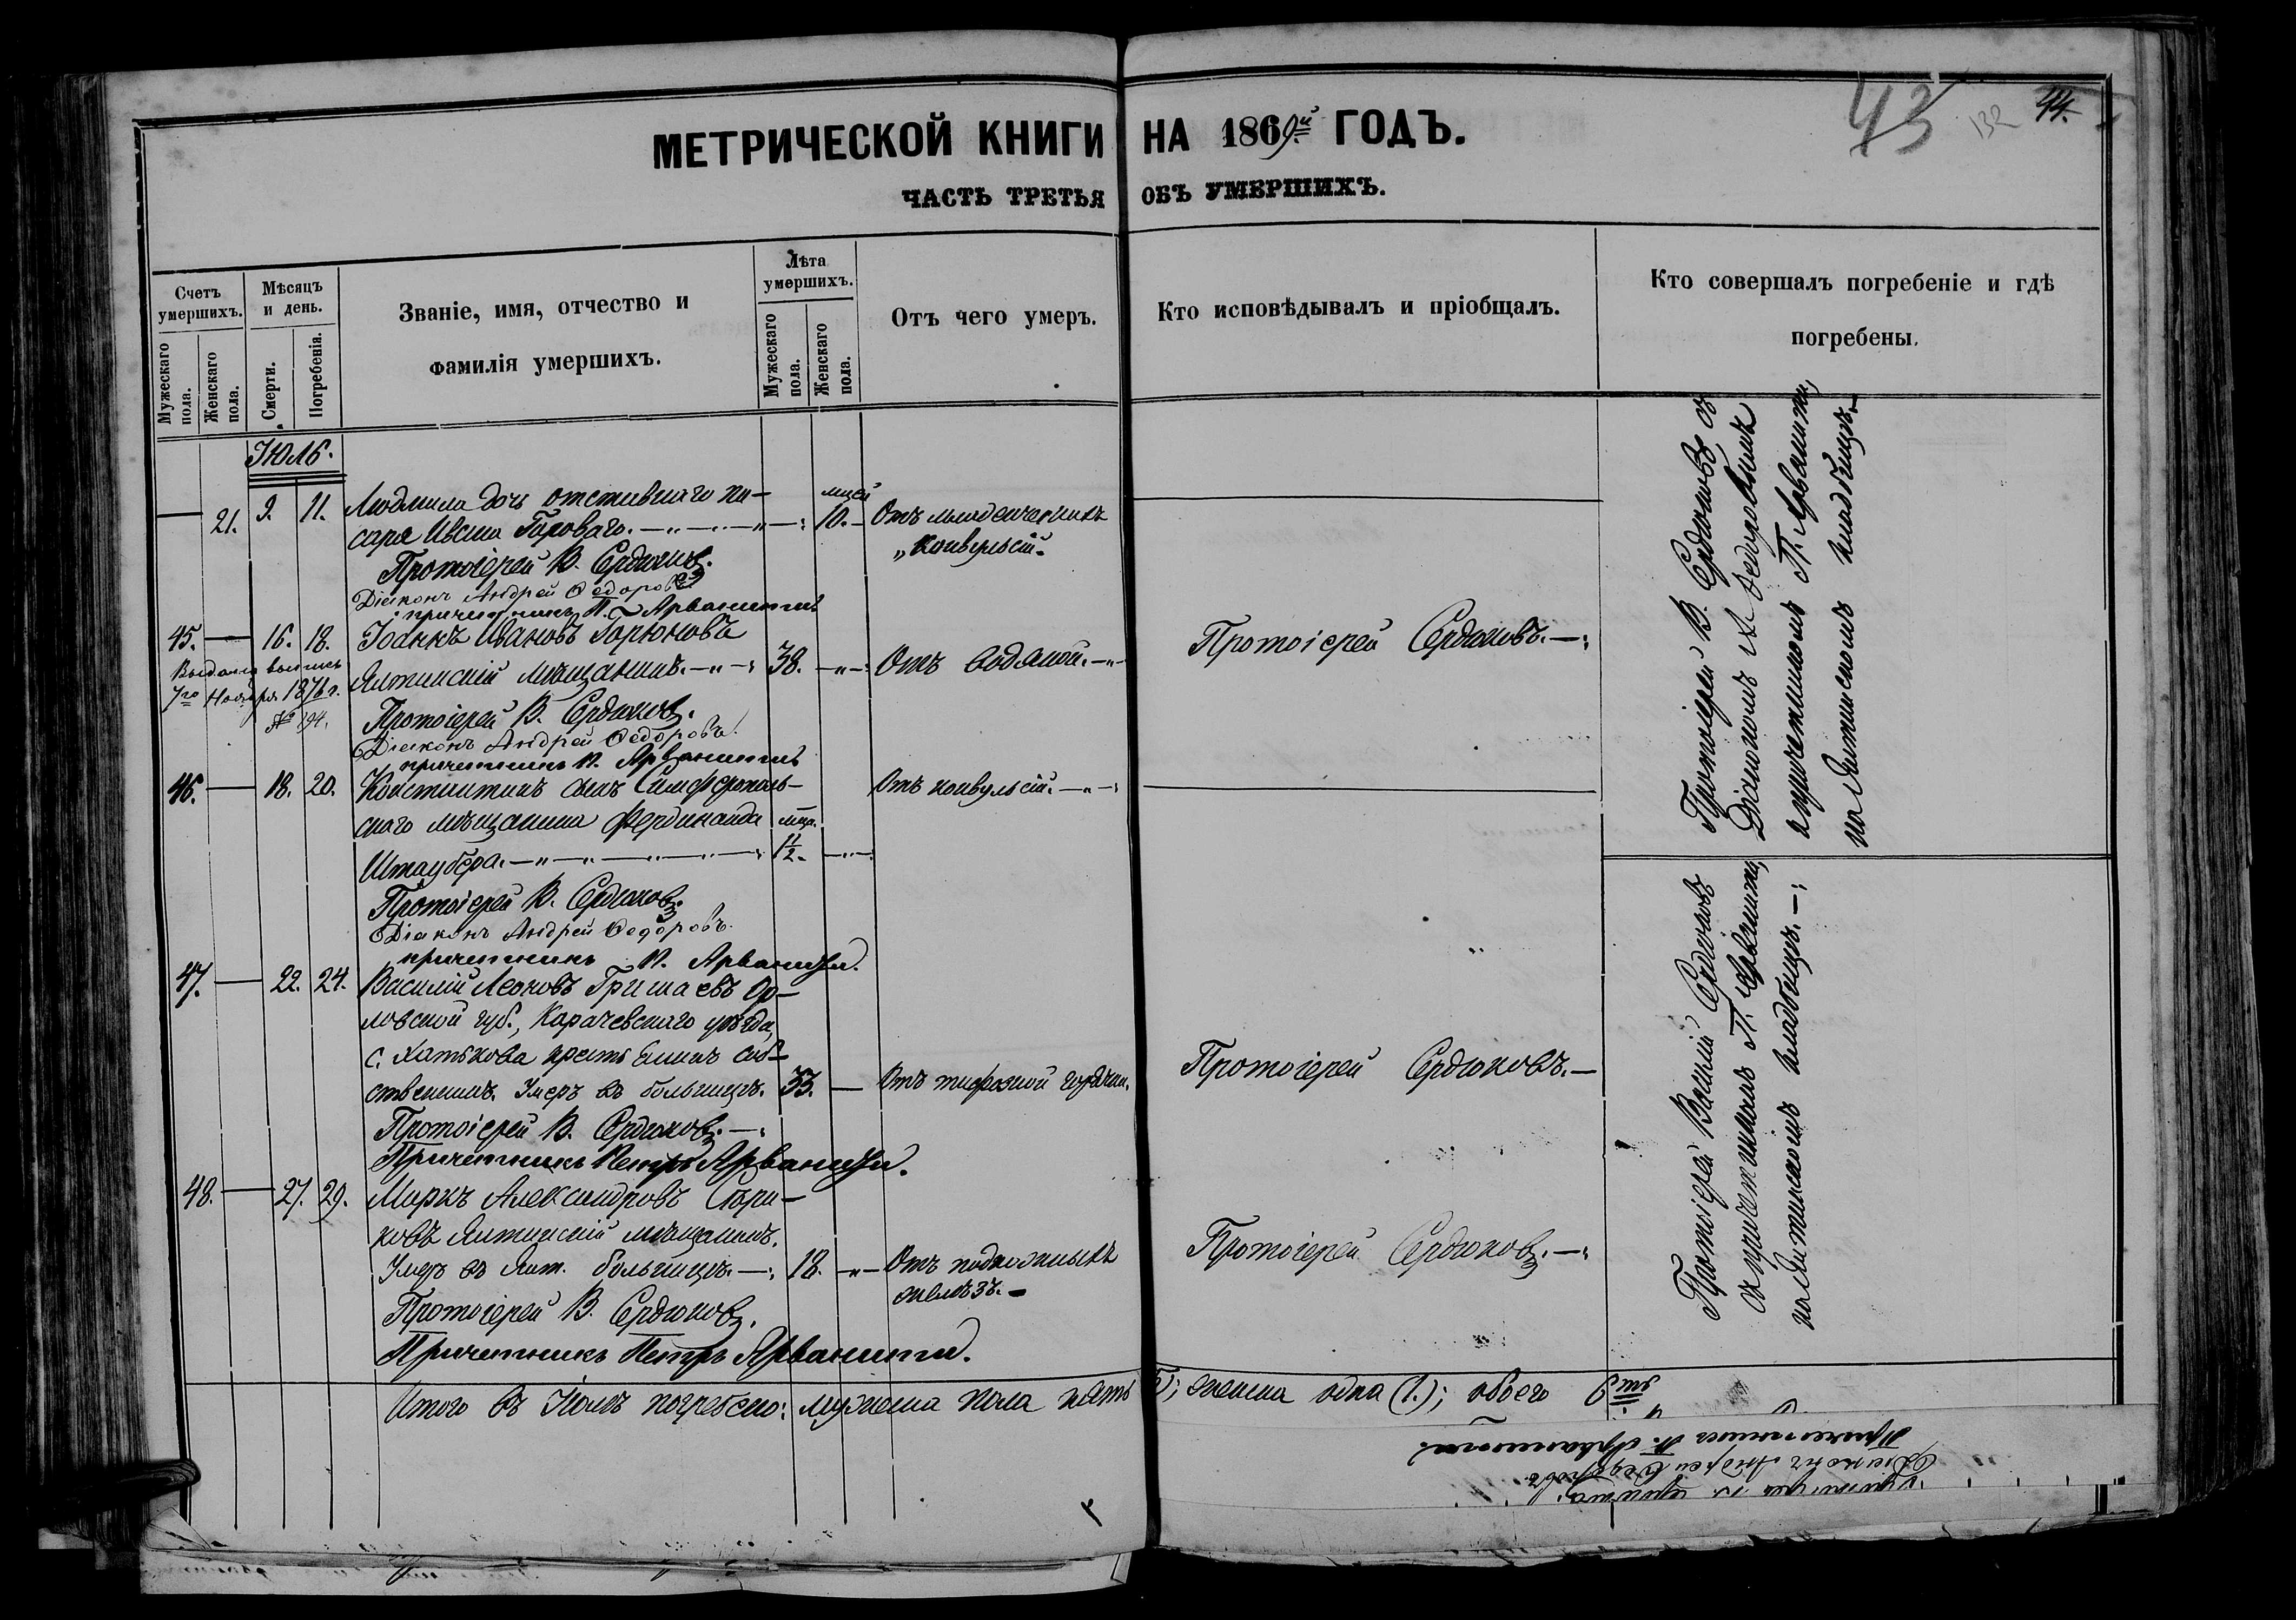 43 132 44.
МЕТРИЧЕСКОЙ КНИГИ НА 1869.й ГОДЪ.
ЧАСТЬ ТРЕТЬЯ ОБЪ УМЕРШИХЪ.
Счетъ умершихъ.
Мужескаго пола.
Женскаго пола.
Мѣсяцъ и день.
Смерти.
Погребенія.
Званіе, имя, отчество и
фамилія умершихъ.
Лѣта умершихъ.
Мужескаго пола.
Женскаго пола.
Отъ чего умеръ.
Кто исповѣдывалъ и пріобщалъ.
Кто совершалъ погребеніе и гдѣ
погребены.
Юль.
— 21. 9. 11. Людмила дочь отставнаго пи-
саря Ивана Гароваго. мцей 10. Отъ младенческихъ
конвульсій.
Протоіерей В. Сердюковъ.
Діаконъ Андрей Ѳедоровъ
причетникъ П. Арванити
45. — 16. 18. Іоаннъ Ивановъ Горюновъ
Ялтинскій мѣщанинъ. 38. Отъ водяной.
Протоіерей Сердюковъ.
Выдана выпись
7го Ноября 1876 г.
№ 194.
Протоіерей В. Сердюковъ.
Діаконъ Андрей Ѳедоровъ.
причетникъ П. Арванити
46. — 18. 20. Константинъ сынъ Симферополь-
скаго мѣщанина Фердинанда мца.
Штаубера. 1 1/2. Отъ конвульсій.
Протоіерей В. Сердюковъ.
Діаконъ Андрей Ѳедоровъ.
причетникъ П. Арванити.
Протоіерей В. Сердюковъ съ
Діакономъ А. Ѳедоровымъ
и причетникомъ П. Арванити,
на Ялтинскомъ кладбищѣ.
47. — 22. 24. Василій Леоновъ Гришаевъ Ор-
ловской губ., Карачевскаго уѣзда,
с. Хатькова крестьянинъ соб-
ственникъ. Умеръ въ больницѣ. 33. — Отъ тифозной горячки.
Протоіерей Сердюковъ.
Протоіерей В. Сердюковъ.
Причетникъ Петръ Арванити.
48. — 27. 29. Маркъ Александровъ Стари-
ковъ Ялтинскій мѣщанинъ.
Умеръ въ Ялт. больницѣ. 18. Отъ подкожныхъ
желѣзъ.
Протоіерей Сердюковъ.
Протоіерей В. Сердюковъ.
Причетникъ Петръ Арванити.
Протоіерей Василій Сердюковъ
съ причетникомъ П. Арванити,
на Ялтинскомъ кладбищѣ.
Итого въ Юлѣ погребено: мужеска пола пять; женска одна (1.); обоего 6
Діаконъ Андрей Ѳедоровъ.
Причетникъ П. Арванити.